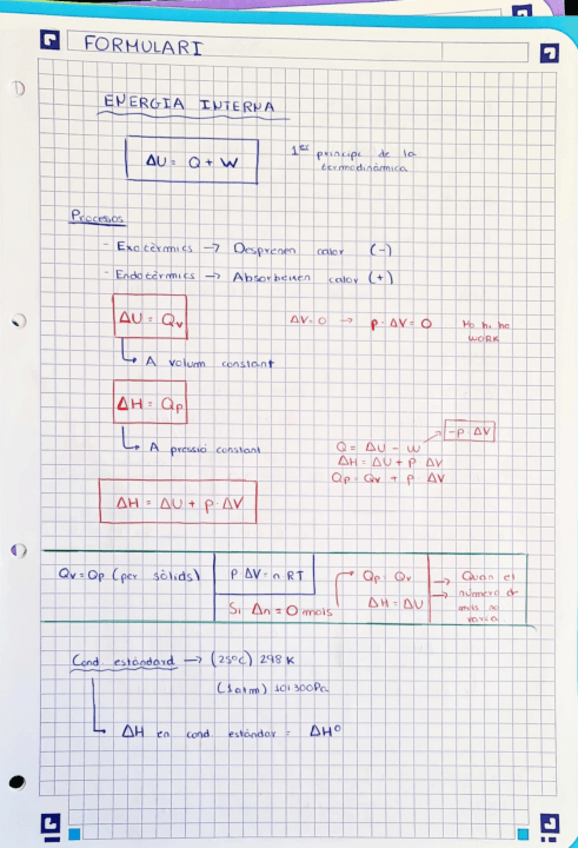 FORMULARI
ENERGIA INTERNA
ΔU = Q + W
1er principi de la
termodinàmica
Processos
- Exotèrmics → Desprenen calor (-)
- Endotèrmics → Absorbeixen calor (+)
ΔU = Qv
ΔV = 0 → p · ΔV = 0
No hi ha
WORK
A volum constant
ΔH = Qp
A pressió constant
-p ΔV
Q = ΔU - W
ΔH = ΔU + P ΔV
Qp = Qv + P ΔV
ΔH = ΔU + p · ΔV
Qv = Qp (per sòlids)
P ΔV = n RT
Si Δn = 0 mols
Qp = Qv
ΔH = ΔU
→ Quan el
→ número de
mols no
varia
Cond estàndard → (25ºC) 298 K
(1 atm) 101300Pa
ΔH en cond estàndar = ΔHº